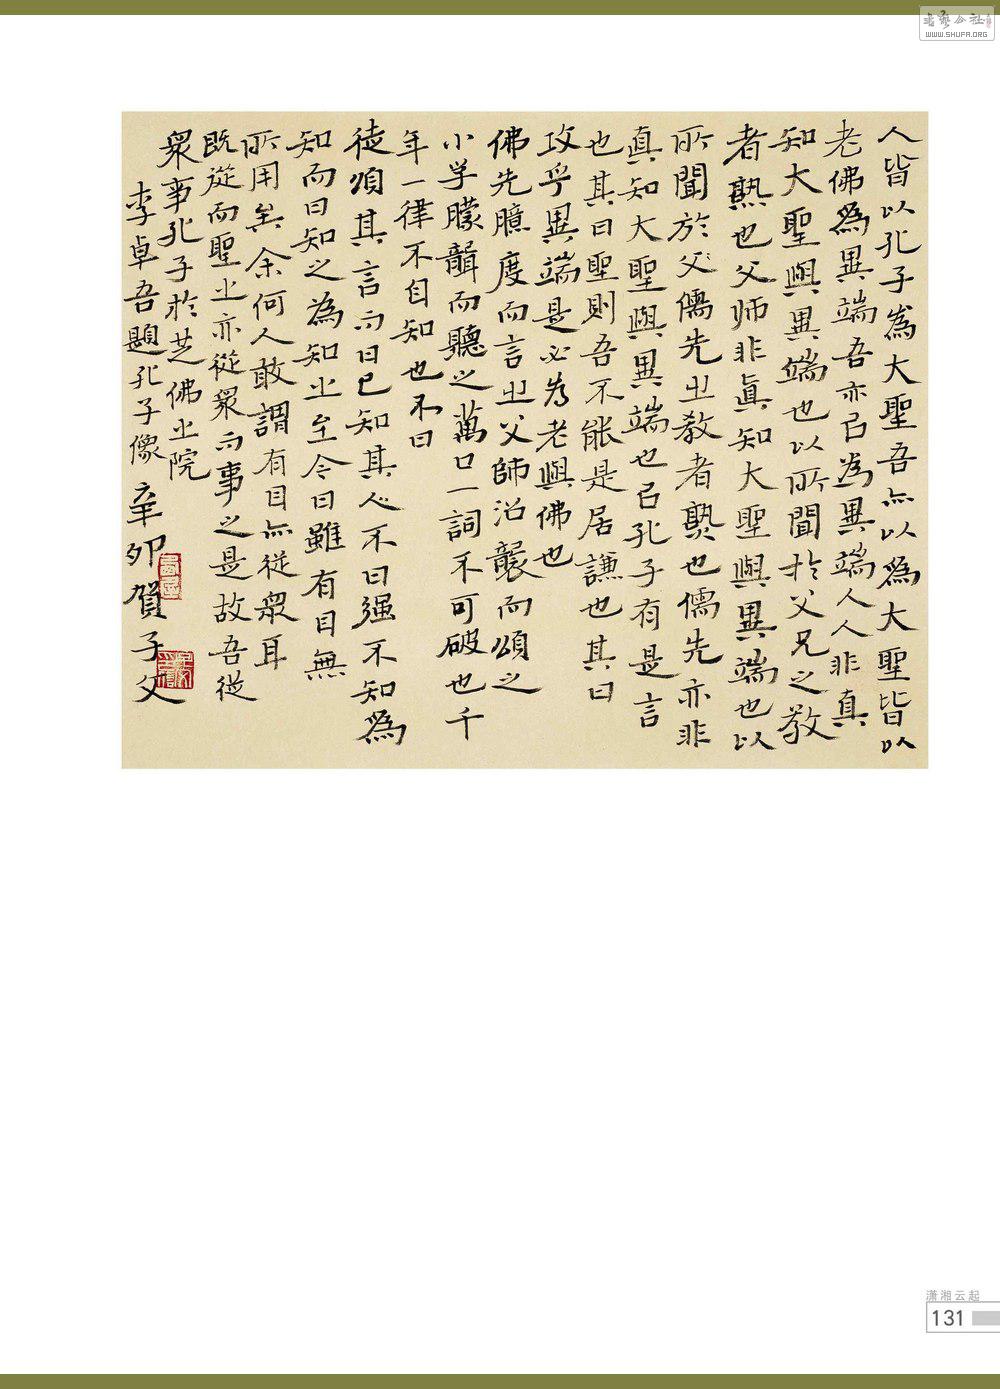 人皆以孔子為大聖吾亦以為大聖皆以
老佛為異端吾亦以為異端人人非真
知大聖與異端也以所聞於父兄之教
者熟也父師非真知大聖與異端也以
所聞於父儒先之教者熟也儒先亦非
真知大聖與異端也以孔子有是言
也其曰聖則吾不能是居謙也其曰
攻乎異端是必為老與佛也
佛先臆度而言之父師沿襲而頌之
小学朦聾而聽之萬口一詞不可破也千
年一律不自知也不曰
徒頌其言而曰已知其人不曰強不知為
知而曰知之為知之至今日雖有目無
所用矣余何人敢謂有目亦從眾耳
既從而聖之亦從眾而事之是故吾從
眾事孔子於芝佛之院
李卓吾題孔子像 辛卯賀子父
潇湘云起
131
WWW.SHUFA.ORG